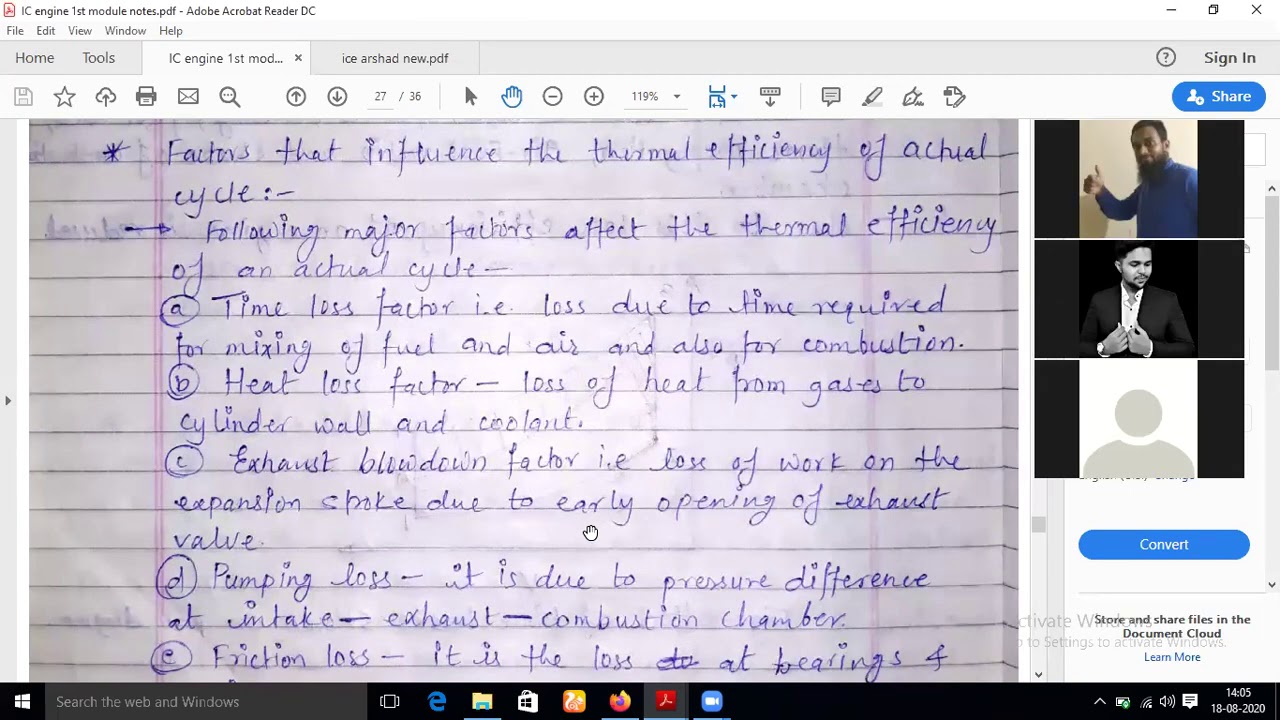 IC engine 1st module notes.pdf - Adobe Acrobat Reader DC
File Edit View Window Help
Home Tools IC engine 1st mod... × ice arshad new.pdf Sign In
27 / 36 119% Share
* Factors that influence the thermal efficiency of actual
cycle:-
→ Following major factors affect the thermal efficiency
of an actual cycle —
(a) Time loss factor i.e. loss due to time required
for mixing of fuel and air and also for combustion.
(b) Heat loss factor — loss of heat from gases to
cylinder wall and coolant.
(c) Exhaust blowdown factor i.e loss of work on the
expansion stroke due to early opening of exhaust
valve.
(d) Pumping loss — it is due to pressure difference
at intake — exhaust — combustion chamber.
(e) Friction loss — it is the loss at bearings &
Change
Convert
Store and share files in the
Document Cloud
Learn More
Activate Windows
to Settings to activate Windows.
Search the web and Windows
14:05
18-08-2020